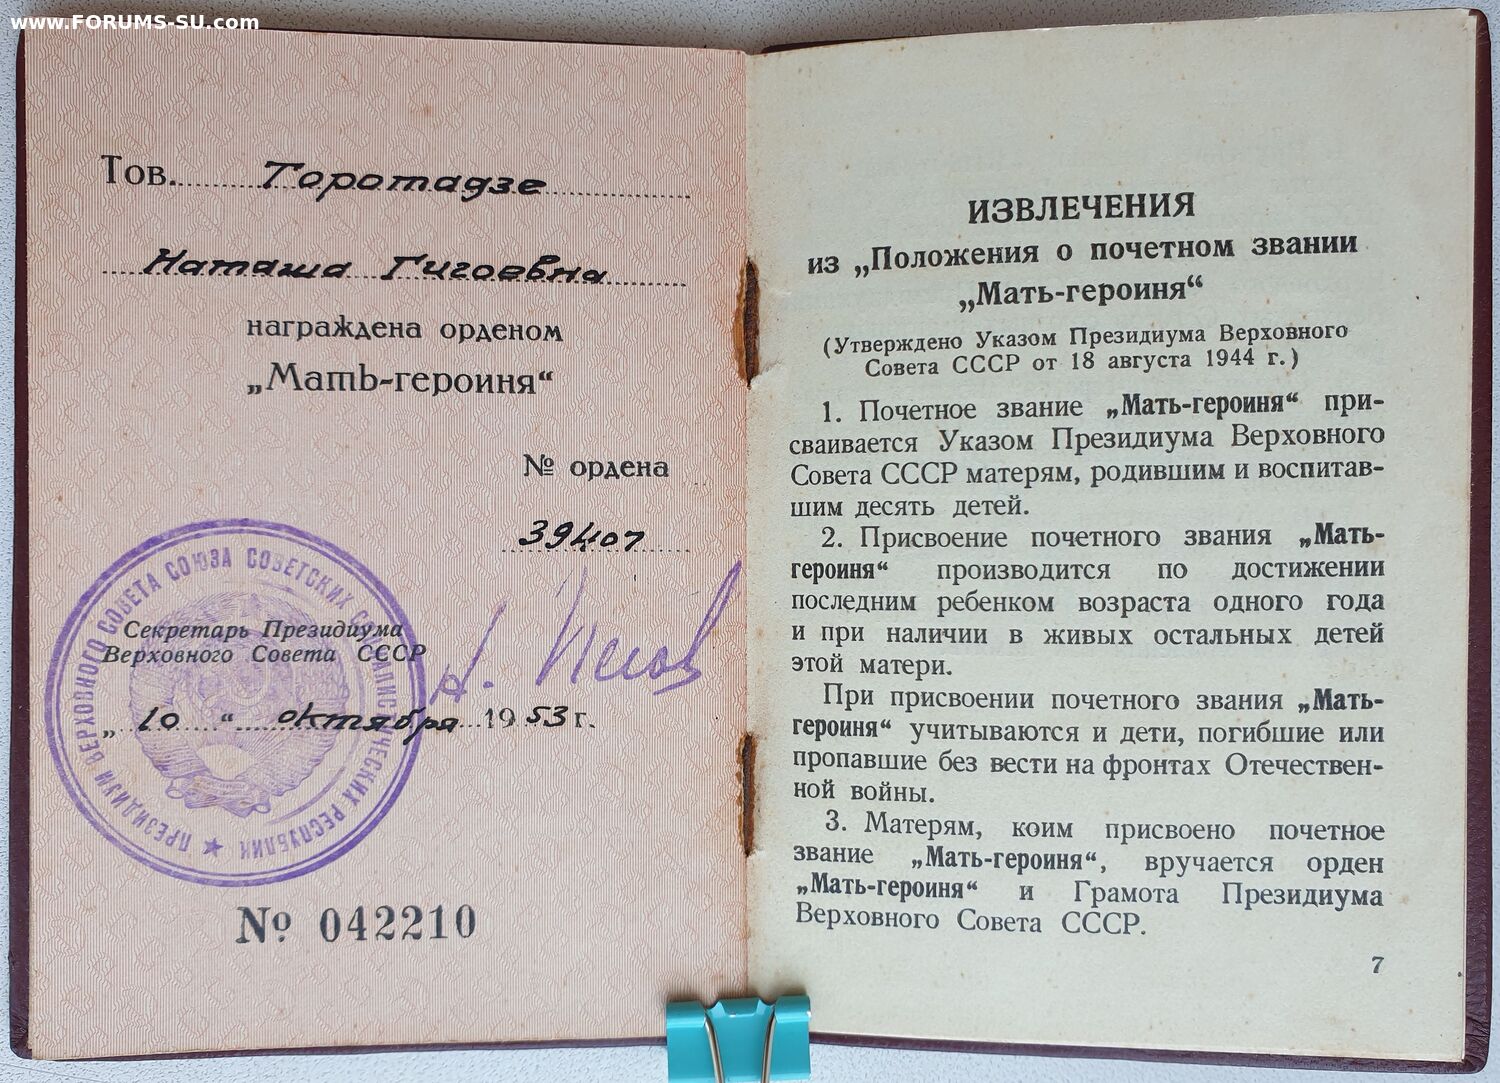 www.FORUMS-SU.com
Тов. Торотадзе
Наташа Гигоевна
награждена орденом
„Мать-героиня“
№ ордена
39407
Секретарь Президиума
Верховного Совета СССР
„ 10 “ октября 1953 г.
ПРЕЗИДИУМ ВЕРХОВНОГО СОВЕТА СОЮЗА СОВЕТСКИХ СОЦИАЛИСТИЧЕСКИХ РЕСПУБЛИК
№ 042210
ИЗВЛЕЧЕНИЯ
из „Положения о почетном звании
„Мать-героиня“
(Утверждено Указом Президиума Верховного
Совета СССР от 18 августа 1944 г.)
1. Почетное звание „Мать-героиня“ при-
сваивается Указом Президиума Верховного
Совета СССР матерям, родившим и воспитав-
шим десять детей.
2. Присвоение почетного звания „Мать-
героиня“ производится по достижении
последним ребенком возраста одного года
и при наличии в живых остальных детей
этой матери.
При присвоении почетного звания „Мать-
героиня“ учитываются и дети, погибшие или
пропавшие без вести на фронтах Отечествен-
ной войны.
3. Матерям, коим присвоено почетное
звание „Мать-героиня“, вручается орден
„Мать-героиня“ и Грамота Президиума
Верховного Совета СССР.
7